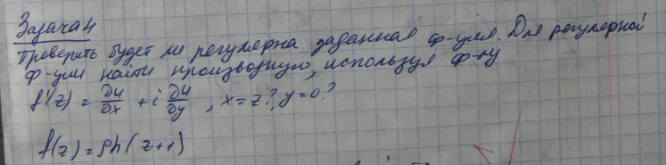 Задача 4
Проверить будет ли регулярна заданная ф-ция. Для регулярной
ф-ции найти производную, используя ф-лу
f'(z) = ∂u/∂x + i ∂u/∂y , x = z?, y = 0?
f(z) = sh(z+1)